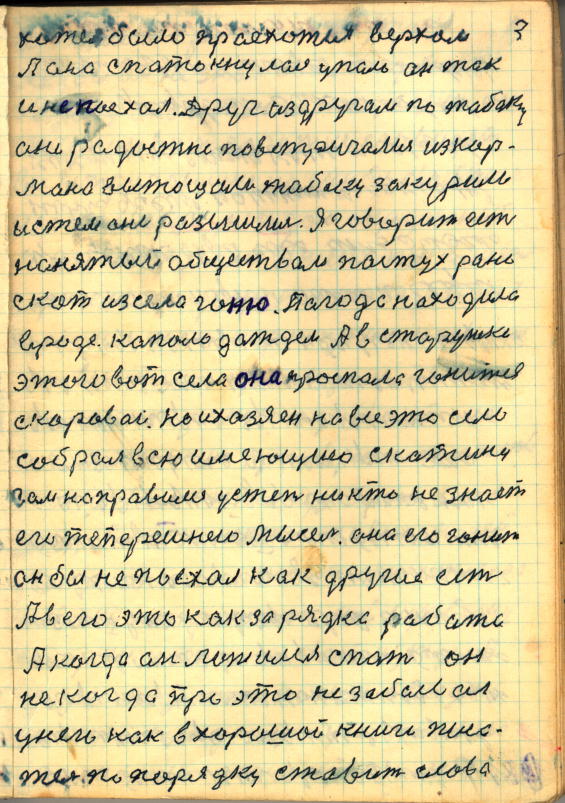 3
хотел было проехотся верхом
Лана спатокнулая упаль он так
и не поехал. Друг аздругам по табаку
они радостно поветричался из кар-
мана вытощили табаку закурили
и стем они разышлись. Я говорит ест
нанятый обществам пастух рано
скот из села гоню. Погода находила
вроде каполо дождем А в старушке
этого вот села она проспала гонится
скаровай. но и хазяен на все это село
собрал всю имеющию скотину
гам направили устеп никто не знает
его теперешнею мысел. она его гонит
он бы не поехал как другие ест
А в его это как зарядка работа
А когда он ложился спат он
некогда про это незабывал
унего как в хорошой книги
тся по порядку ставит слова